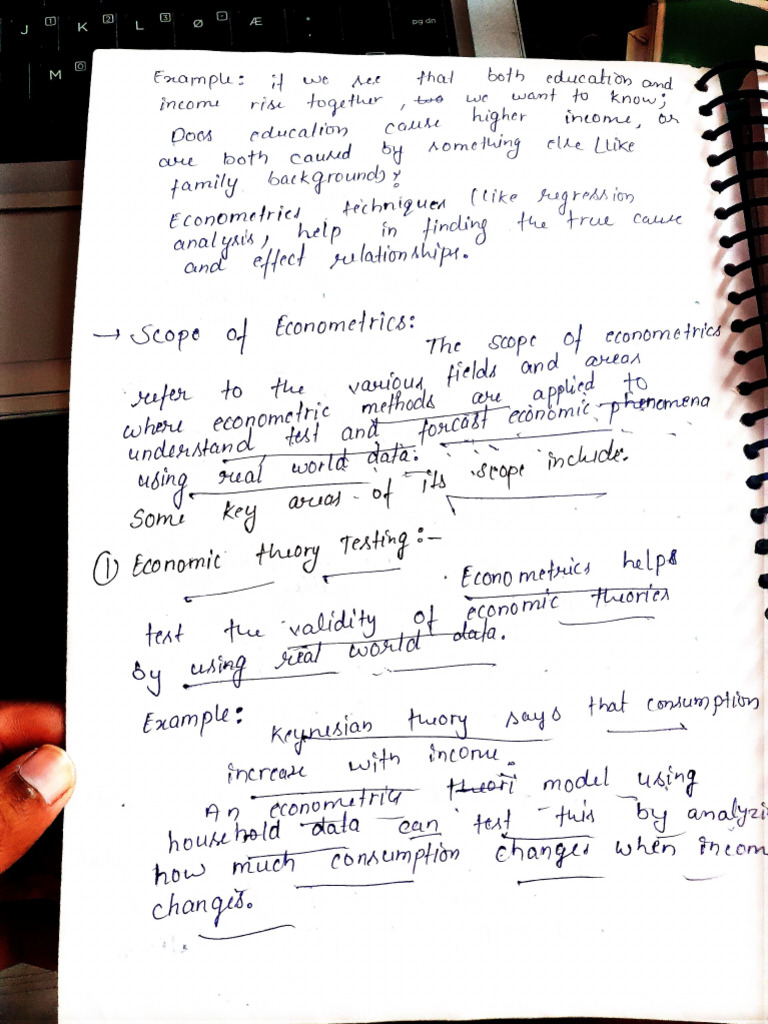 J
K
L
Ø
Æ
pg dn
M
Example: if we see that both education and
income rise together, we want to know;
Does education cause higher income, or
are both caused by something else (like
family background)?
Econometrics techniques (like regression
analysis, help in finding the true cause
and effect relationships.
→ Scope of Econometrics:
The scope of econometrics
refer to the various fields and areas
where econometric methods are applied to
understand test and forcast economic phenomena
using real world data.
Some key areas of its scope include.
① Economic theory Testing:-
Econometrics helps
test the validity of economic theories
by using real world data.
Example:
Keynesian theory says that consumption
increase with income.
An econometrics theori model using
household data can test this by analyzi
how much consumption changes when incom
changes.